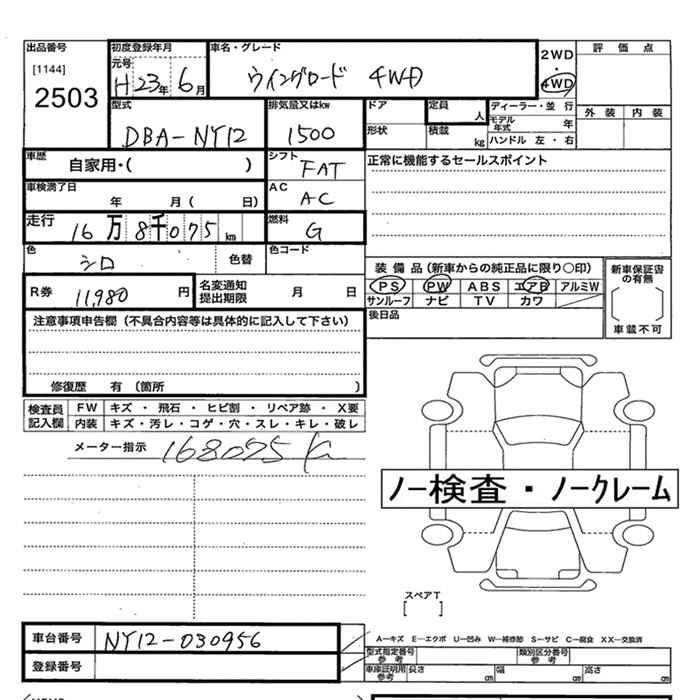 出品番号 初度登録年月 車名・グレード 2WD 評価点
[1144] 元号 ・
2503 H 23年 6月 ウイングロード 4WD 4WD
外装 内装
型式 排気量又はkw ドア 定員 人 ディーラー・並行
モデル年式 年
DBA-NY12 1500 形状 積載 kg ハンドル 左・右
車歴 自家用・( ) シフト FAT 正常に機能するセールスポイント
車検満了日 年 月( 日) AC AC
走行 16万8千075km 燃料 G
色 シロ 色替 色コード
装備品(新車からの純正品に限り○印) 新車保証書の有無
R券 11,980円 名変通知提出期限 月 日 PS PW ABS エアB アルミW
サンルーフ ナビ TV カワ
注意事項申告欄(不具合内容等は具体的に記入して下さい) 後日品 車載不可
修復歴 有(箇所 )
検査員記入欄 FW キズ・飛石・ヒビ割・リペア跡・X要
内装 キズ・汚レ・コゲ・穴・スレ・キレ・破レ
メーター指示 168075K
ノー検査・ノークレーム
スペアT
[ ]
車台番号 NY12-030956 A―キズ E―エクボ U―凹み W―補修跡 S―サビ C―腐食 XX―交換済
型式指定番号 参考 類別区分番号 参考
登録番号 車庫証明用 参考 長さ cm 幅 cm 高さ cm